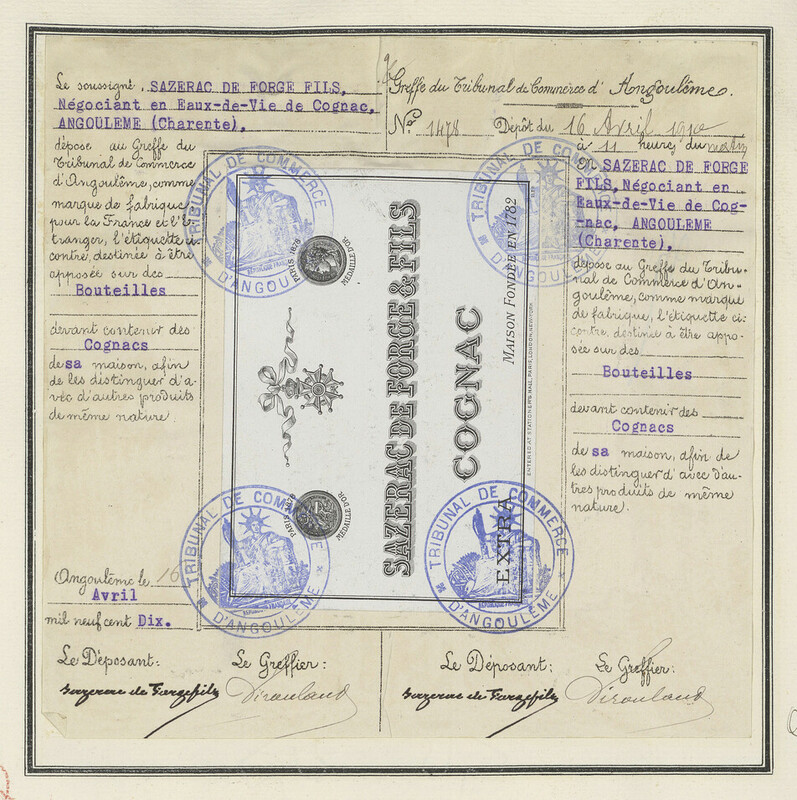 Le soussigné, SAZERAC DE FORGE FILS,
Négociant en Eaux-de-Vie de Cognac,
ANGOULEME (Charente),
dépose au Greffe du
Tribunal de Commerce
d'Angoulême, comme
marque de fabrique
pour la France et l'É-
tranger, l'étiquette ci-
contre, destinée à être
apposée sur des
Bouteilles
devant contenir des
Cognacs
de sa maison, afin
de les distinguer d'a-
vec d'autres produits
de même nature.
Angoulême le 16
Avril
mil neuf cent Dix.
Greffe du Tribunal de Commerce d'Angoulême.
No 1478 Dépôt du 16 Avril 1910
à 11 heures du matin
SAZERAC DE FORGE
FILS, Négociant en
Eaux-de-Vie de Cog-
-nac, ANGOULEME
(Charente),
dépose au Greffe du Tribu-
nal de Commerce d'An-
goulême, comme marque
de fabrique, l'étiquette ci-
contre, destinée à être appo-
sée sur des
Bouteilles
devant contenir des
Cognacs
de sa maison, afin de
les distinguer d'avec d'au-
tres produits de même
nature.
SAZERAC DE FORGE & FILS
COGNAC
MAISON FONDÉE EN 1782
EXTRA
ENTERED AT STATIONERS HALL, PARIS, LONDON, NEW YORK
PARIS 1878
MÉDAILLE D'OR
PARIS 1878
MÉDAILLE D'OR
TRIBUNAL DE COMMERCE
D'ANGOULÊME
RÉPUBLIQUE FRANÇAISE
TRIBUNAL DE COMMERCE
D'ANGOULÊME
TRIBUNAL DE COMMERCE
D'ANGOULÊME
RÉPUBLIQUE FRANÇAISE
TRIBUNAL DE COMMERCE
D'ANGOULÊME
RÉPUBLIQUE FRANÇAISE
Le Déposant: Le Greffier:
Sazerac de Forge fils
Le Déposant: Le Greffier:
Sazerac de Forge fils